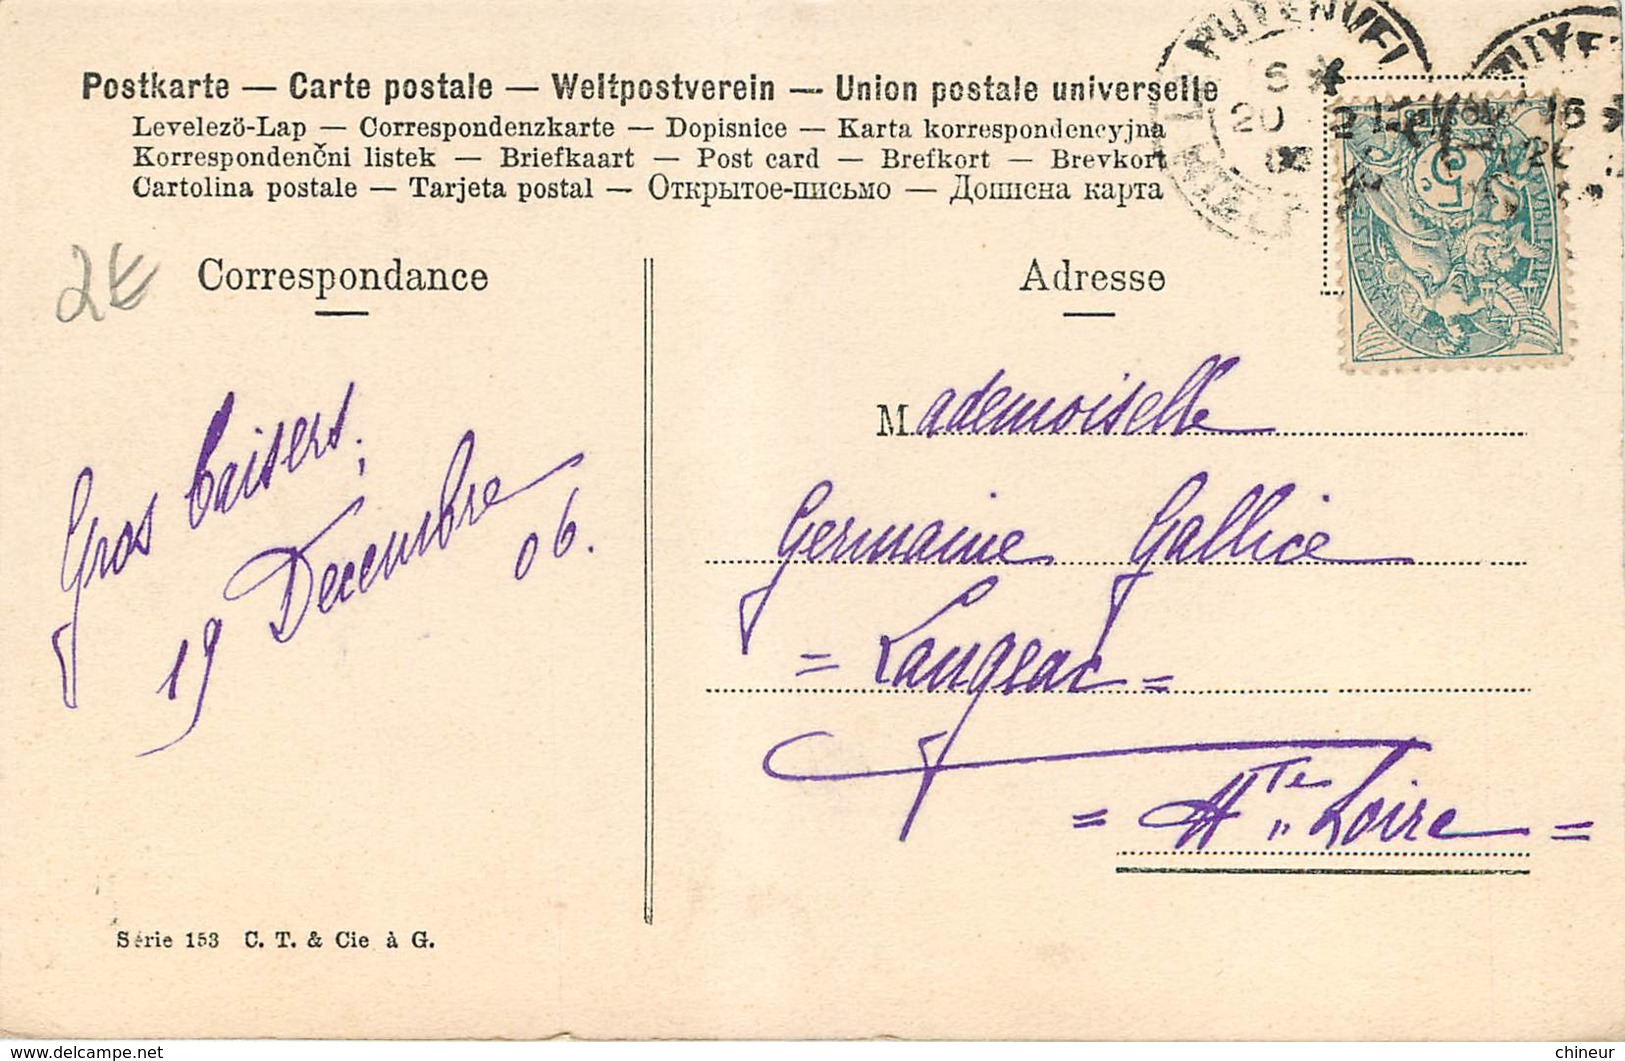 Postkarte — Carte postale — Weltpostverein — Union postale universelle
Levelező-Lap — Correspondenzkarte — Dopisnice — Karta korrespondencyjna
Korrespondenčni listek — Briefkaart — Post card — Brefkort — Brevkort
Cartolina postale — Tarjeta postal — Открытое-письмо — Дописна карта
2€
Correspondance
Adresse
Gros baisers,
19 Decembre
06.
Mademoiselle
Germaine Gallice
= Langeac =
= Hte Loire =
Série 153 C. T. & Cie à G.
www.delcampe.net
chineur